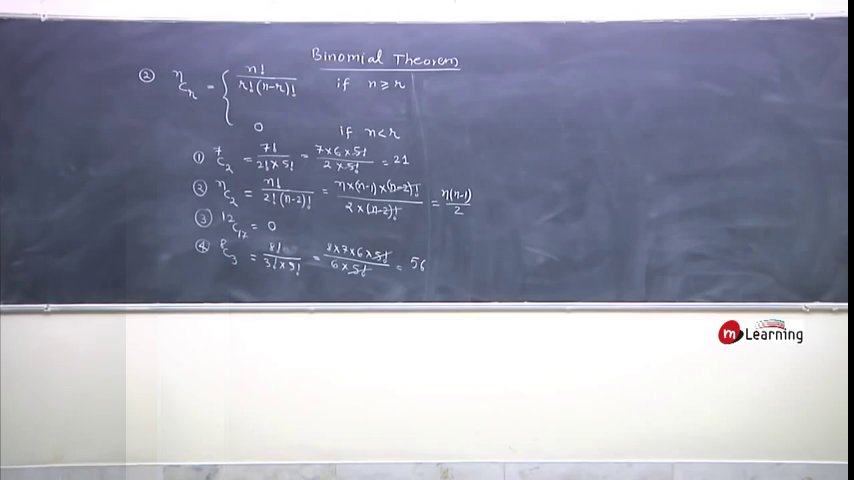 Binomial Theorem
② ⁿCᵣ = { n! / r!(n-r)! if n ≥ r
0 if n < r
① ⁷C₂ = 7! / 2! × 5! = 7 × 6 × 5! / 2 × 5! = 21
② ⁿC₂ = n! / 2!(n-2)! = n × (n-1) × (n-2)! / 2 × (n-2)! = n(n-1) / 2
③ ¹²C₁₇ = 0
④ ⁸C₃ = 8! / 3! × 5! = 8 × 7 × 6 × 5! / 6 × 5! = 56
m Learning